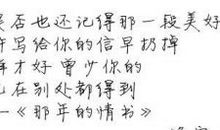 是否也还记得那一段美好
许写给你的信早扔掉
样才好曾少你的
已在别处都得到
《那年的情书》